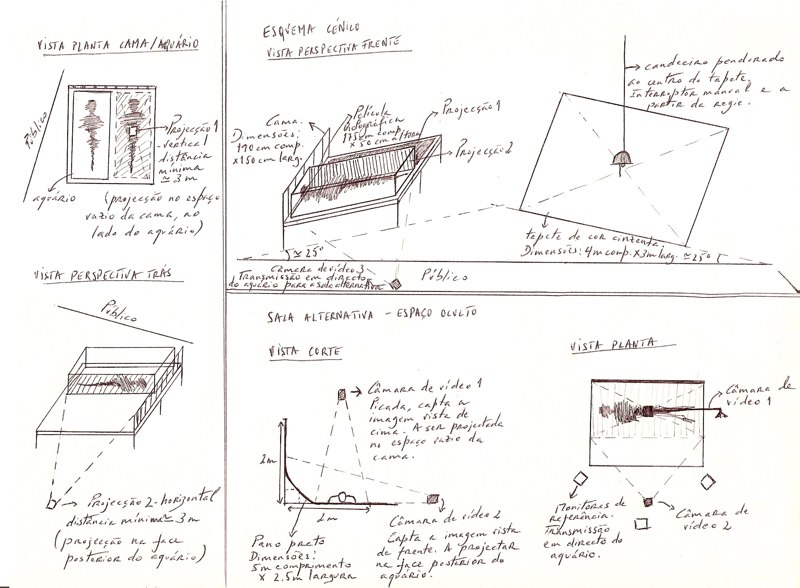 VISTA PLANTA CAMA/AQUÁRIO
Público
Projecção 1
vertical
distância
mínima
≃ 3 m
aquário
(projecção no espaço
vazio da cama, ao
lado do aquário)
VISTA PERSPECTIVA TRÁS
Público
Projecção 2-horizontal
distância mínima ≃ 3 m
(projecção na face
posterior do aquário)
ESQUEMA CÉNICO
VISTA PERSPECTIVA FRENTE
Cama.
Dimensões:
190 cm comp.
x 150 cm larg.
Película
175 cm comp.
x 50 cm altura
Projecção 1
Projecção 2
candeeiro pendurado
ao centro do tapete,
Interruptor manual e a
partir da regie.
tapete de cor cinzenta,
Dimensões: 4m comp. x 3m larg.
≃ 25°
≃ 25°
Câmara de vídeo 3
Transmissão em directo
do aquário para a sala alternativa
Público
SALA ALTERNATIVA - ESPAÇO OCULTO
VISTA CORTE
Câmara de vídeo 1
Picada, capta a
imagem vista de
cima. A ser projectada
no espaço vazio da
cama.
2m
2m
Pano preto
Dimensões:
5m comprimento
x 2.5m largura
Câmara de vídeo 2
Capta a imagem vista
de frente. A projectar
na face posterior do
aquário.
VISTA PLANTA
Câmara de
vídeo 1
Monitores de
referência.
Transmissão
em directo do
aquário.
Câmara de
vídeo 2